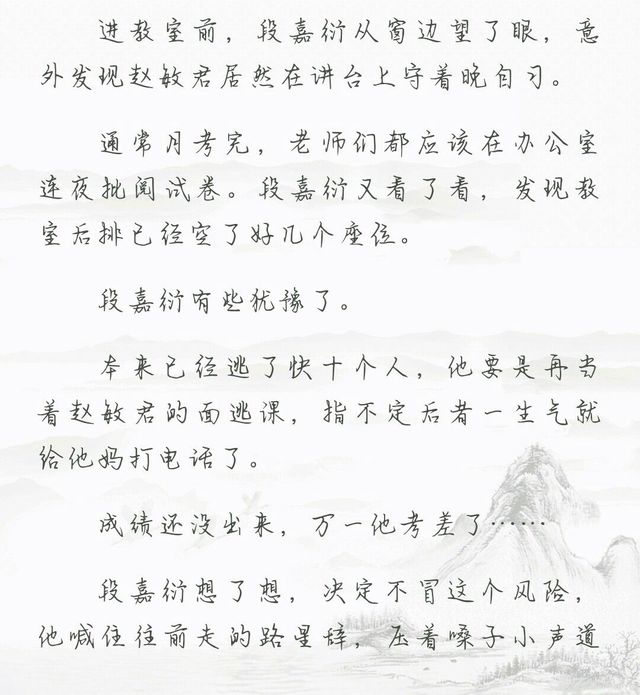 进教室前，段嘉衍从窗边望了眼，意
外发现赵敏君居然在讲台上守着晚自习。
通常月考完，老师们都应该在办公室
连夜批阅试卷。段嘉衍又看了看，发现教
室后排已经空了好几个座位。
段嘉衍有些犹豫了。
本来已经逃了快十个人，他要是再当
着赵敏君的面逃课，指不定后者一生气就
给他妈打电话了。
成绩还没出来，万一他考差了……
段嘉衍想了想，决定不冒这个风险，
他喊住往前走的路星辞，压着嗓子小声道